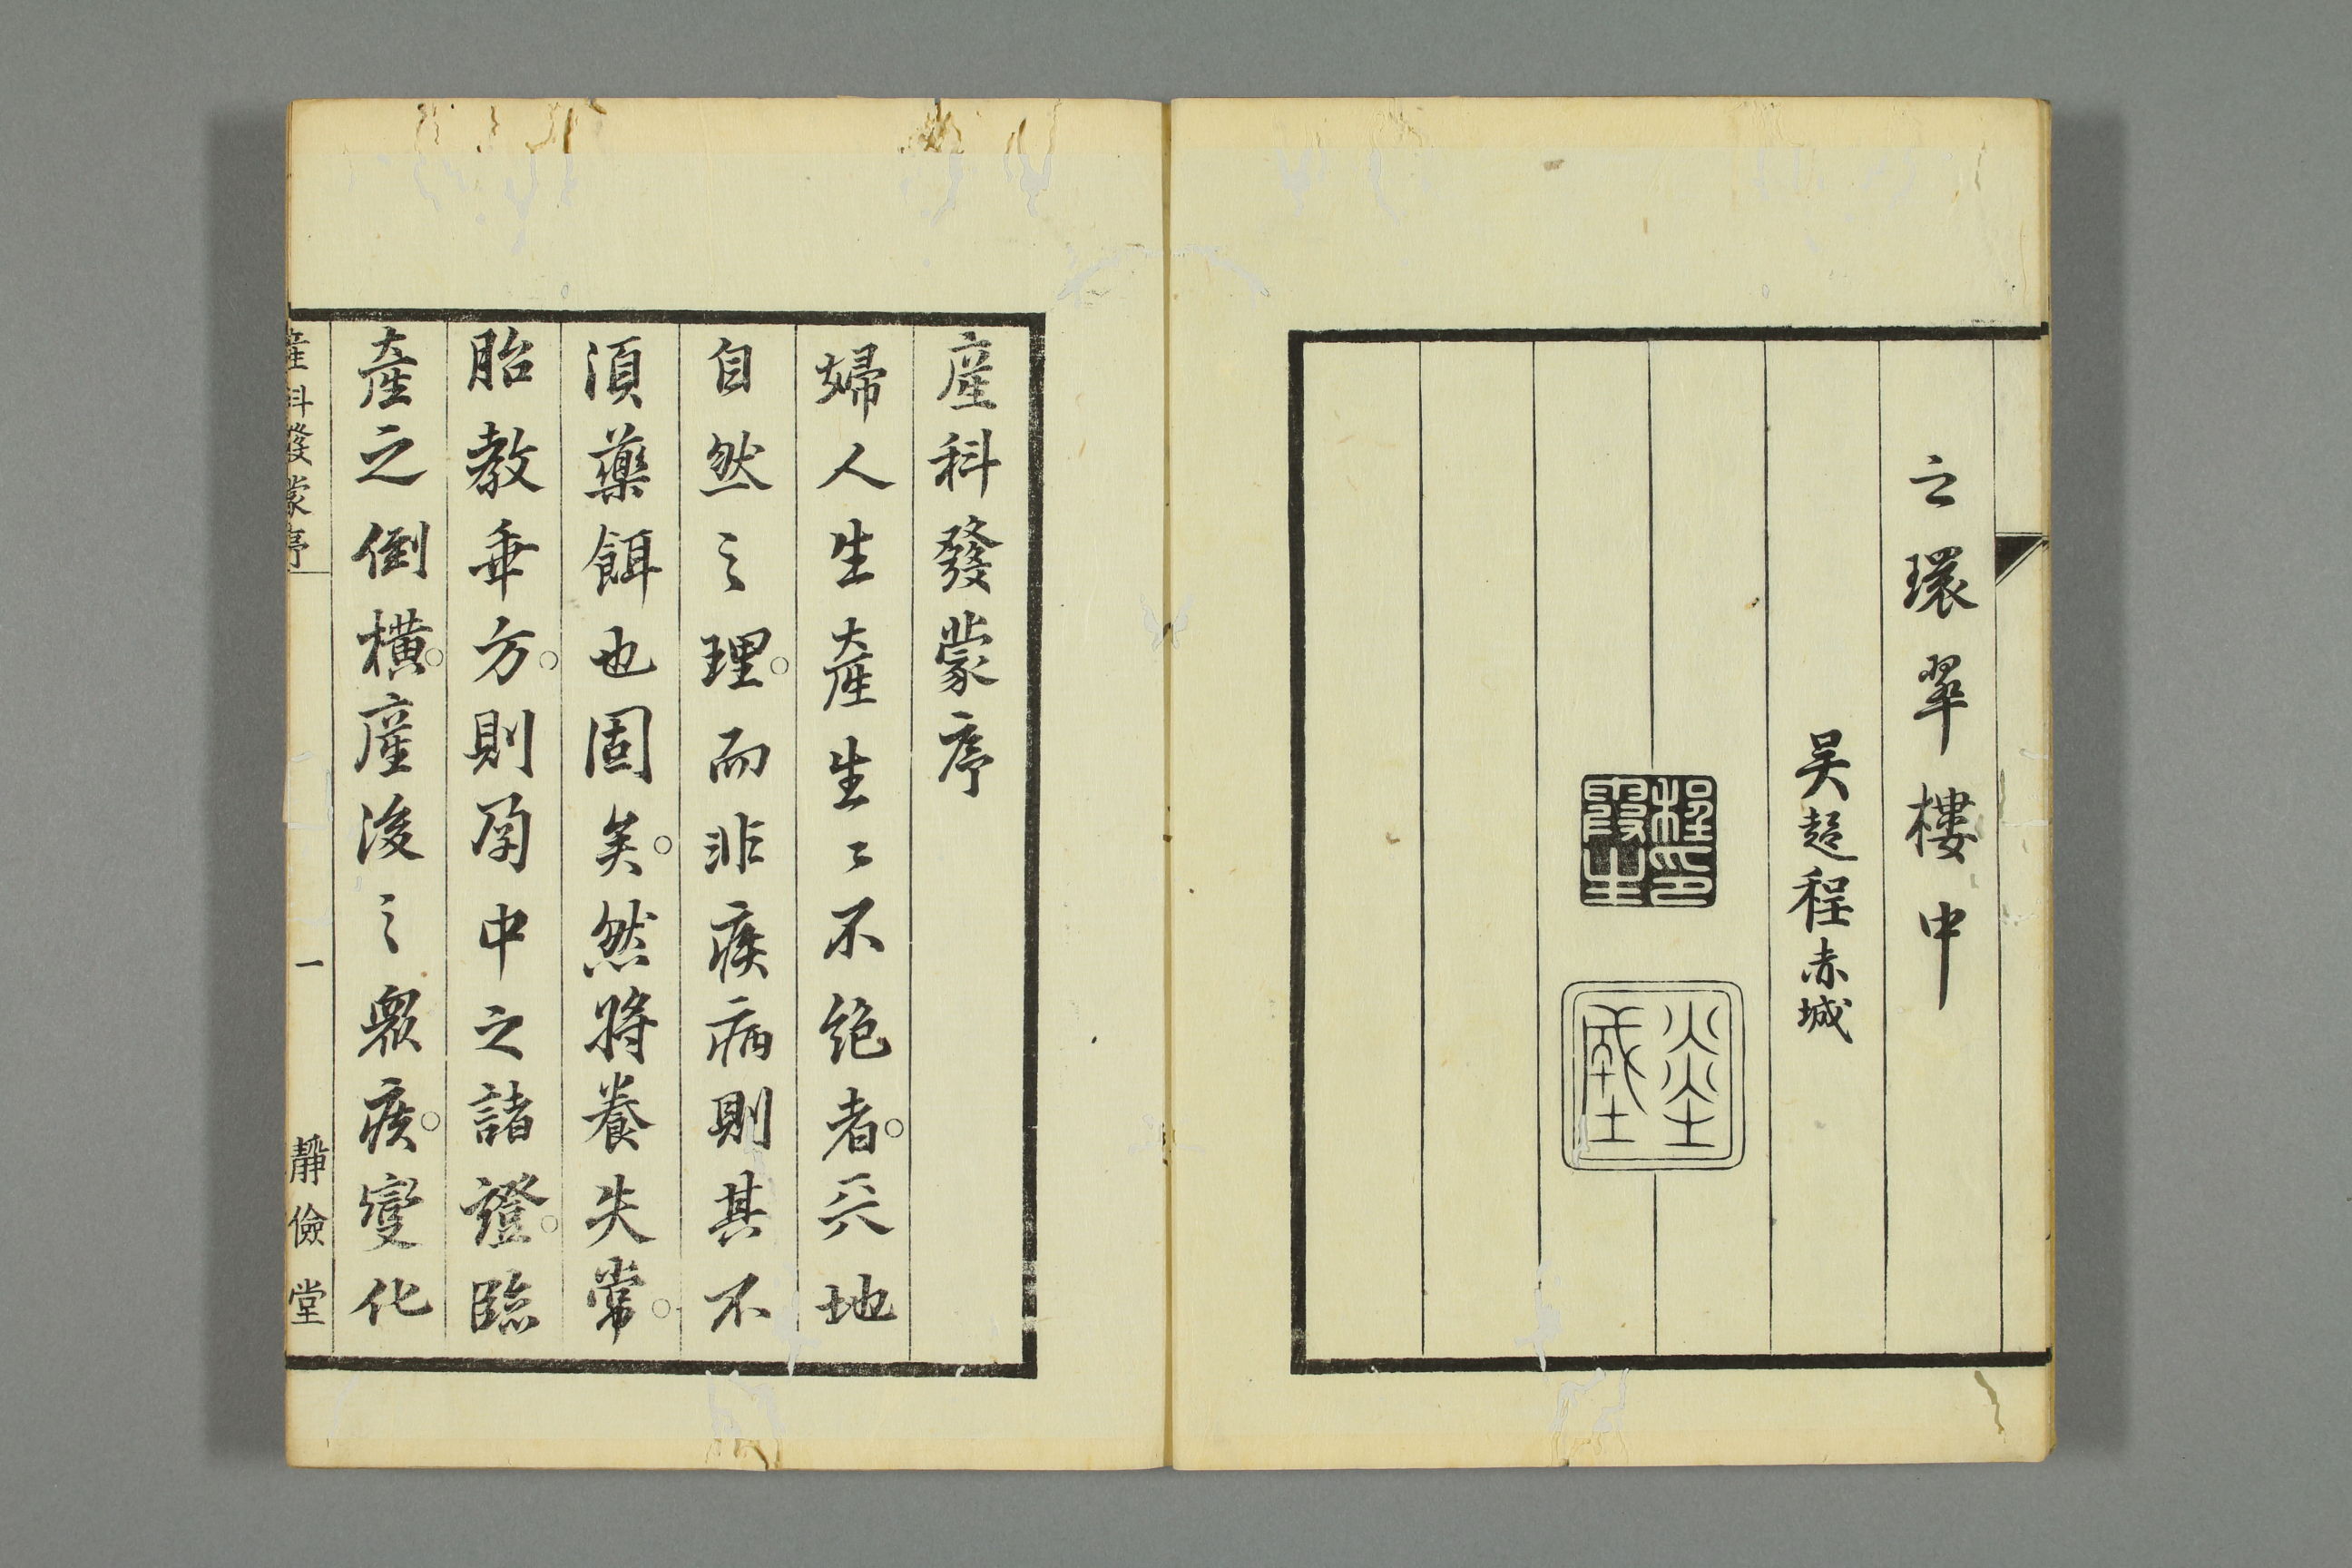 之環翠樓中
吴趍程赤城
程印
霞生
赤城
產科發蒙序
婦人生產生〻不絶者天地
自然之理而非疾病則其不
須藥餌也固矣然將養失常
胎教乖方則孕中之諸證臨
產之倒橫產後之衆疾變化
產科發蒙序
一
靜儉堂